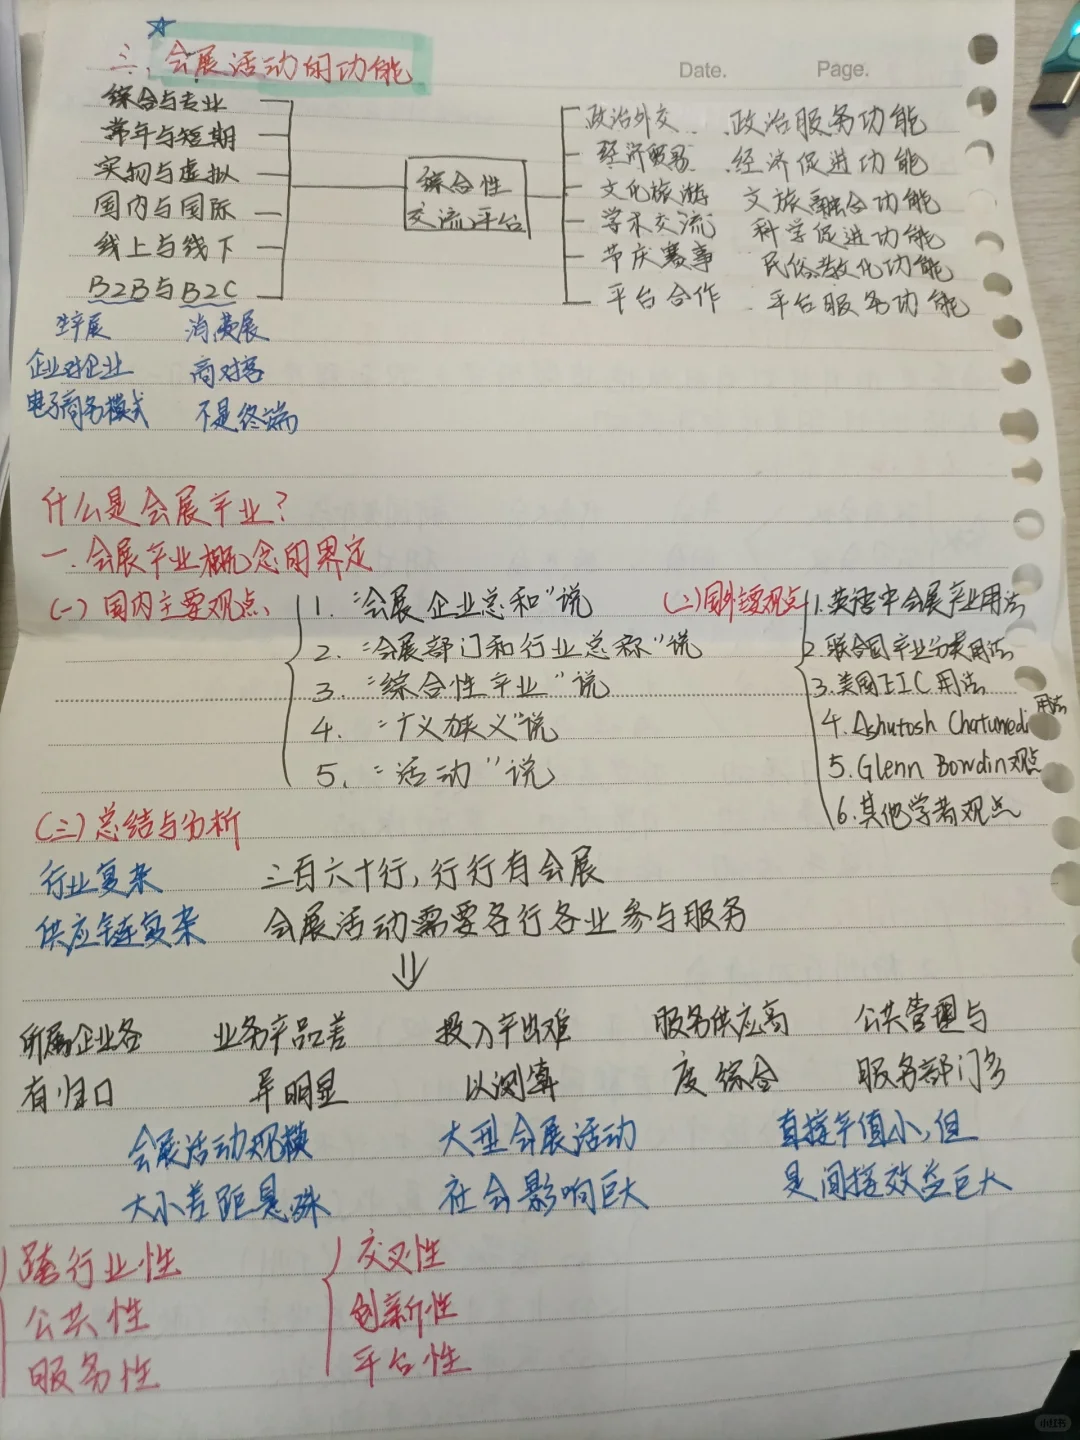 三、会展活动的功能
Date. Page.
综合与专业
常年与短期
实物与虚拟
国内与国际
线上与线下
B2B与B2C
综合性
交流平台
政治外交 政治服务功能
经济贸易 经济促进功能
文化旅游 文旅融合功能
学术交流 科学促进功能
节庆赛事 民俗教化功能
平台合作 平台服务功能
生产展 消费展
企业对企业 商对客
电子商务模式 不是终端
什么是会展产业?
一.会展产业概念的界定
(一)国内主要观点、
1. “会展企业总和”说
2. “会展部门和行业总称”说
3. “综合性产业”说
4. “广义狭义”说
5. “活动”说
(二)国外主要观点
1.英语中会展产业用法
2.联合国产业分类用法
3.美国EIC用法
4.Ashutosh Chaturvedi用法
5.Glenn Bowdin观点
6.其他学者观点
(三)总结与分析
行业复杂 三百六十行,行行有会展
供应链复杂 会展活动需要各行各业参与服务
⇓
所属企业各 业务产品差 投入产出难 服务供应高 公共管理与
有归口 异明显 以测算 度综合 服务部门多
会展活动规模 大型会展活动 直接产值小,但
大小差距悬殊 社会影响巨大 是间接效益巨大
跨行业性 交叉性
公共性 创新性
服务性 平台性
小红书